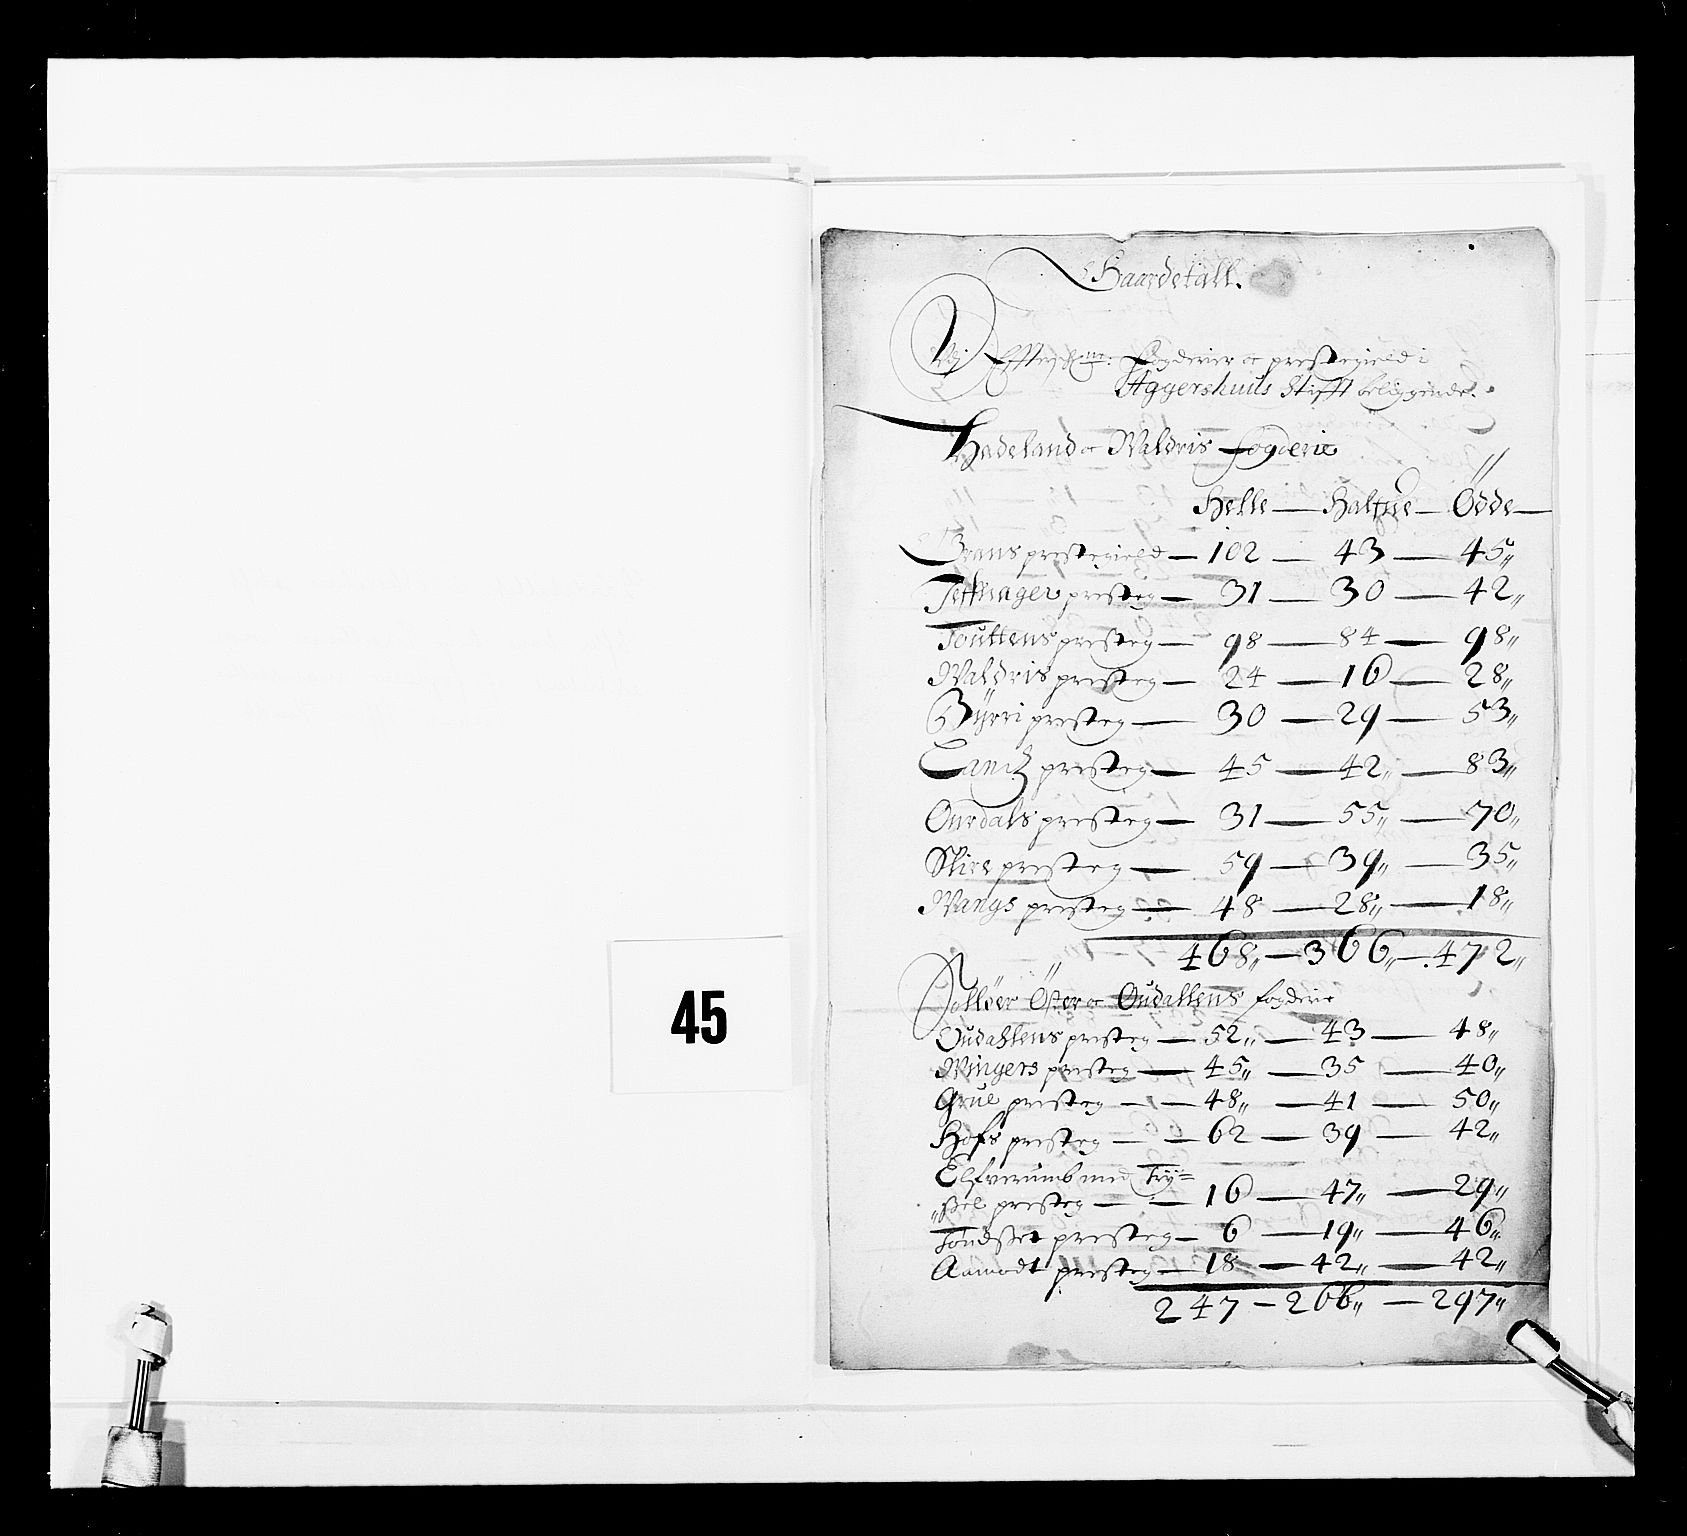 Gaardetall.
Udj Effterschr: Fogderier oc prestegield i
Aggershuus Stifft beliggende.
Hadeland oc Waldris fogderie
Helle — Halfue — Ödde —
Grans prestegield — 102 — 43 — 45,,
Jeffnager presteg — 31 — 30 — 42,,
Touttens presteg — 98 — 84 — 98,,
Waldris presteg — 24 — 16 — 28,,
Bÿrri presteg — 30 — 29 — 53,,
Landz presteg — 45 — 42,, — 83,,
Ourdals presteg — 31 — 55,, — 70,,
Slire presteg — 59 — 39,, — 35,,
Wangs presteg — 48 — 28,, — 18,,
468,, — 366,, — 472,,
Sollöer Öster oc Oudallens fogderie
Oudallens presteg — 52,, — 43 — 48,,
Wingers presteg — 45,, — 35 — 40,,
Grue presteg — 48,, — 41 — 50,,
Hofs presteg — 62 — 39 — 42,,
Elfverumb med Trÿ=
,,sel presteg — 16 — 47,, — 29,,
Töndset presteg — 6 — 19,, — 46,,
Aamodt presteg — 18 — 42,, — 42,,
247 — 266,, — 297,,
45